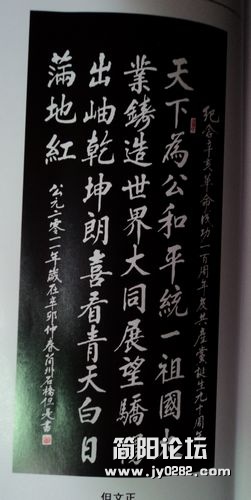 纪念辛亥革命成功一百周年及共产党诞生九十周年
天下為公和平統一祖國大
業鑄造世界大同展望驕陽
出岫乾坤朗喜看青天白日
滿地紅
公元二零一一年歲在辛卯仲春簡州石橋但是書
简阳论坛
www.jy0282.com
但文正